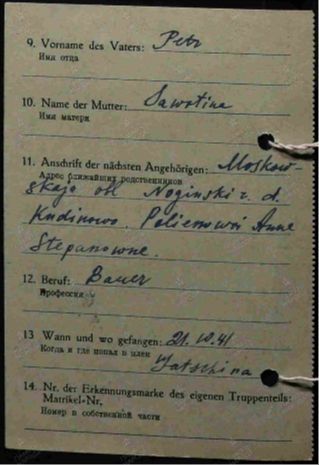 9. Vorname des Vaters: Petr
Имя отца
10. Name der Mutter: Sawotina
Имя матери
11. Anschrift der nächsten Angehörigen: Moskow-
Адрес ближайших родственников
skaja obl Noginski r. d.
Kudinowo. Polienowoi Anne
Stepanowne.
12. Beruf: Bauer
Профессия
13 Wann und wo gefangen: 21.10.41
Когда и где попал в плен
Jatschina
14. Nr. der Erkennungsmarke des eigenen Truppenteils:
Matrikel-Nr.
Номер в собственной части